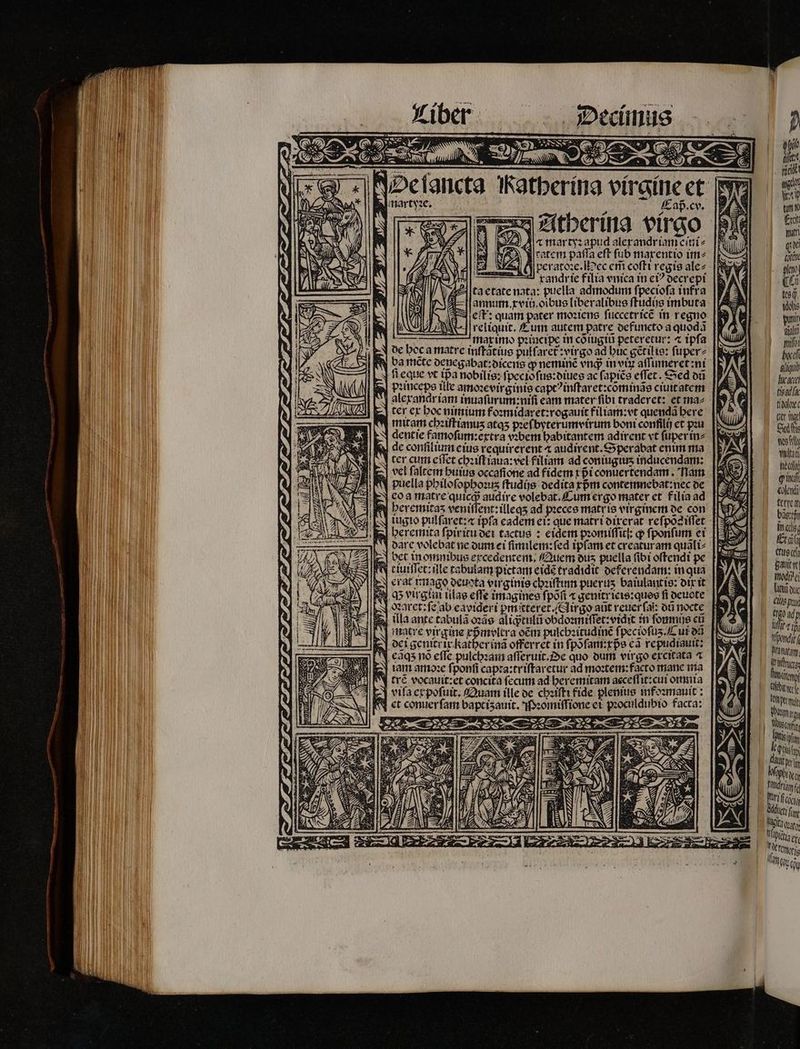 Liber Decimus
De sancta Katherina virgine et
martyre. Cap̄.cv.
KAtherina virgo
⁊ martyr apud alexandriam ciui⸗
tatem passa est sub maxentio im⸗
peratore. Hec em̄ costi regis ale⸗
xandrie filia vnica in eiꝰ decrepi
ta etate nata: puella admodum speciosa infra
annum.xviij.oibus liberalibus studijs imbuta
est: quam pater moriens succetricē in regno
reliquit. Cum autem patre defuncto a quodā
maximo principe in cōiugiū peteretur: ⁊ ipsa
de hoc a matre instātius pulsaret᷑: virgo ad huc gētilis: super⸗
ba mēte denegabat: dicens ꝙ neminē vnꝙ̄ in virū assumeret: ni
si eque vt ip̄a nobilis: speciosus: diues ac sapiēs esset. Sed dū
princeps ille amore virginis captꝰ instaret: cōminās ciuitatem
alexandriam inuasurum: nisi eam mater sibi traderet: et ma⸗
ter ex hoc nimium formidaret: rogauit filiam: vt quendā here
mitam christianus atqꝫ presbyterum virum boni consilij et pru
dentie famosum: extra vrbem habitantem adirent vt super in⸗
de consilium eius requirerent ⁊ audirent. Sperabat enim ma
ter cum esset christiana: vel filiam ad coniugiuꝫ inducendam:
vel saltem huius occasione ad fidem xp̄i conuertendam. Nam
puella philosophoruꝫ studijs dedita xp̄m contemnebat: nec de
eo a matre quicꝙ̄ audire volebat. Cum ergo mater et filia ad
heremitas venissent: illeqꝫ ad preces matris virginem de con
iugio pulsaret: ⁊ ipsa eadem ei: que matri dixerat respōdisset
heremita spiritu dei tactus : eidem promissit: ꝙ sponsum ei
dare volebat ne dum ei similem: sed ipsam et creaturam quāli⸗
bet in omnibus excedentem. Quem duꝫ puella sibi ostendi pe
tiuisset: ille tabulam pictam eidē tradidit deferendam: in qua
erat imago deuota virginis christum pueruꝫ baiulantis: dixit
qꝫ virgini illas esse imagines spōsi ⁊ genitricis: quos si deuote
oraret: se ab ea videri pmitteret. Uirgo aūt reuersa: dū nocte
illa ante tabulā orās aliqn̄tulū obdormisset: vidit in somnijs cū
matre virgine xp̄m vltra oēm pulchritudinē speciosuꝫ. Cui dū
dei genitrix katherinā offerret in spōsam: xp̄s eā repudiauit:
eāqꝫ nō esse pulchram asseruit. De quo dum virgo excitata ⁊
iam amore sponsi capta: tristaretur ad mortem: facto mane ma
trē vocauit: et concita secum ad heremitam accessit: cui omnia
visa exposuit. Quam ille de christi fide plenius informauit :
et conuersam baptizauit. Promissione ei proculdubio facta: